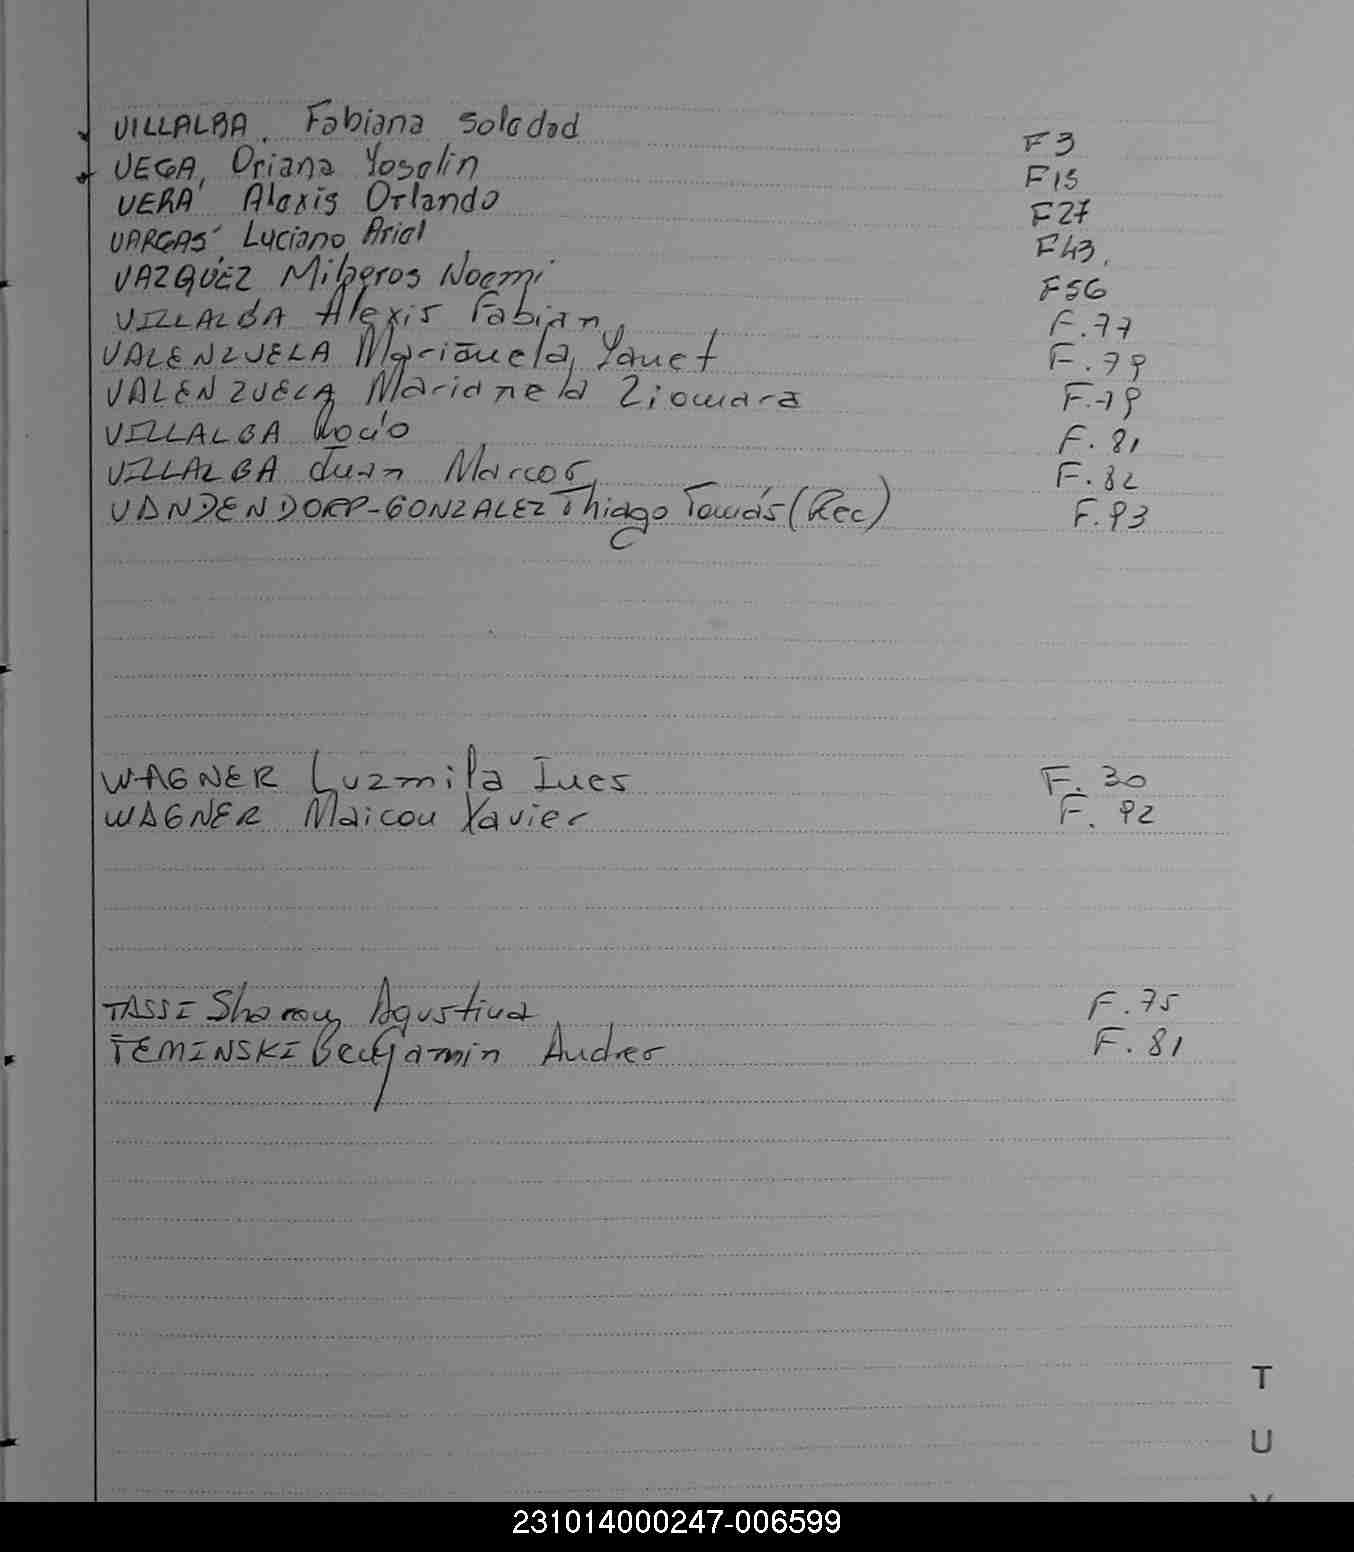 VILLALBA, Fabiana Soledad F3
VEGA, Oriana Yoselin F15
VERA Alexis Orlando F27
VARGAS, Luciano Ariel F43.
VAZQUEZ Milagros Noemi F56
VILLALBA Alexis Fabian F.77
VALENZUELA Marianela Yanet F.79
VALENZUELA Marianela Ziomara F.79
VILLALBA Rocío F.81
VILLALBA Juan Marcos F.82
VANDENDORP-GONZALEZ Thiago Tomás (Rec) F.93
WAGNER Luzmila Ines F.30
WAGNER Maicon Xavier F.92
TASSI Sharon Agustina F.75
TEMINSKI Benjamin Andres F.81
T
U
231014000247-006599